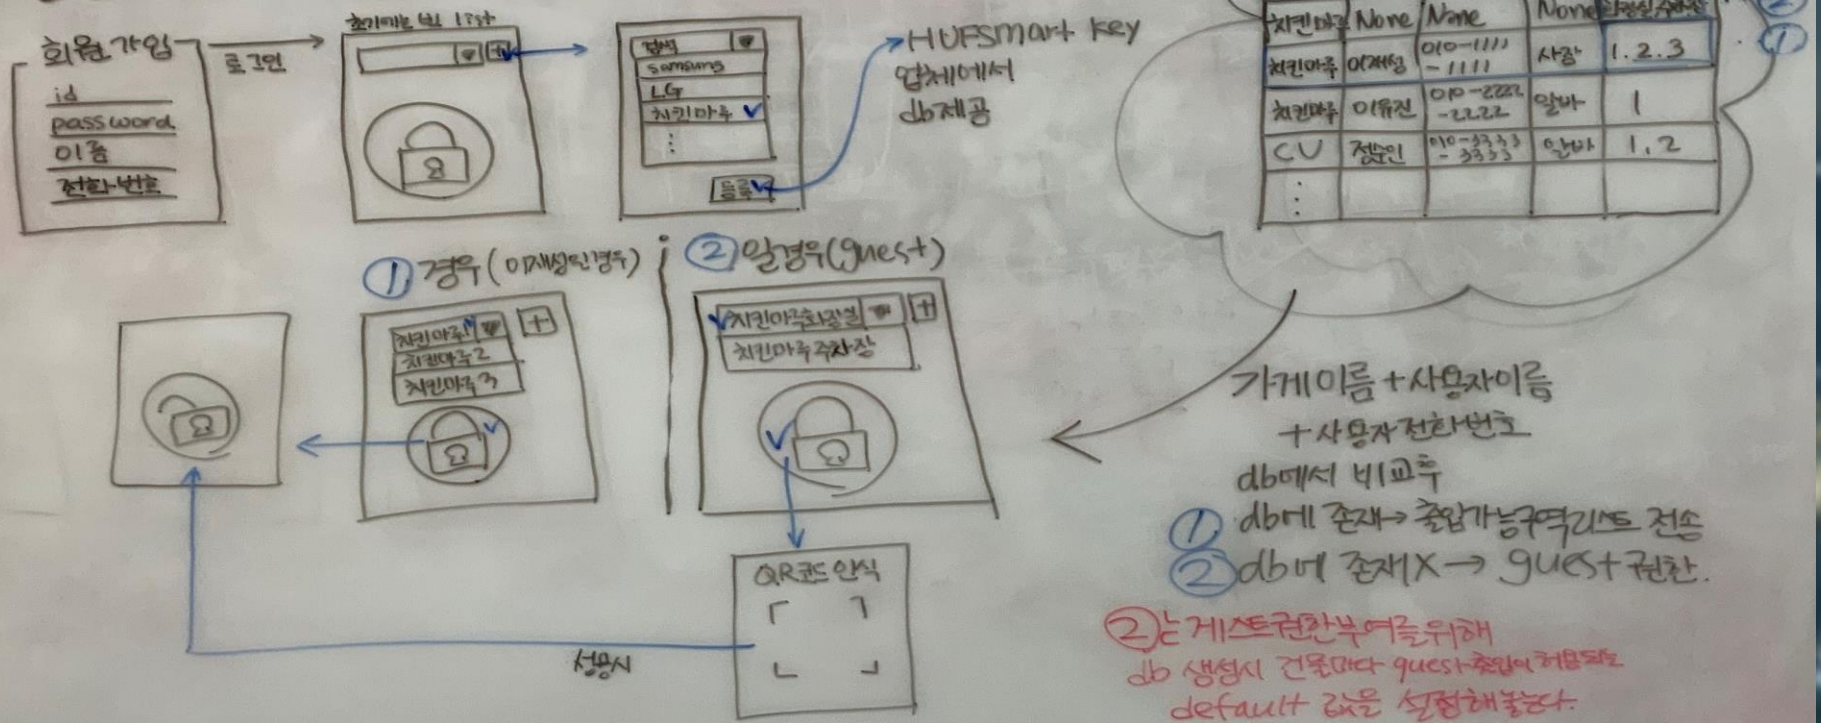 회원가입
id
password
이름
전화번호
로그인
초기에는 빈 list
검색
samsung
LG
치킨마루
⋮
등록
HUFSmart Key
업체에서
db제공
치킨마루 None None None
치킨마루 이재성 010-1111-1111 사장 1.2.3
치킨마루 이유진 010-2222-2222 알바 1
CU 010-3333-3333 알바 1,2
⋮
②
①
① 경우(이재성인경우)
치킨마루1
치킨마루2
치킨마루3
② 일경우(guest)
치킨마루화장실
치킨마루주차장
QR코드 인식
성공시
가게이름+사용자이름
+사용자전화번호
db에서 비교후
① db에 존재→출입가능구역리스트 전송
② db에 존재X → guest권한.
②는 게스트권한부여를위해
db 생성시 건물마다 guest출입이 허용되는
default 값을 설정해놓는다.